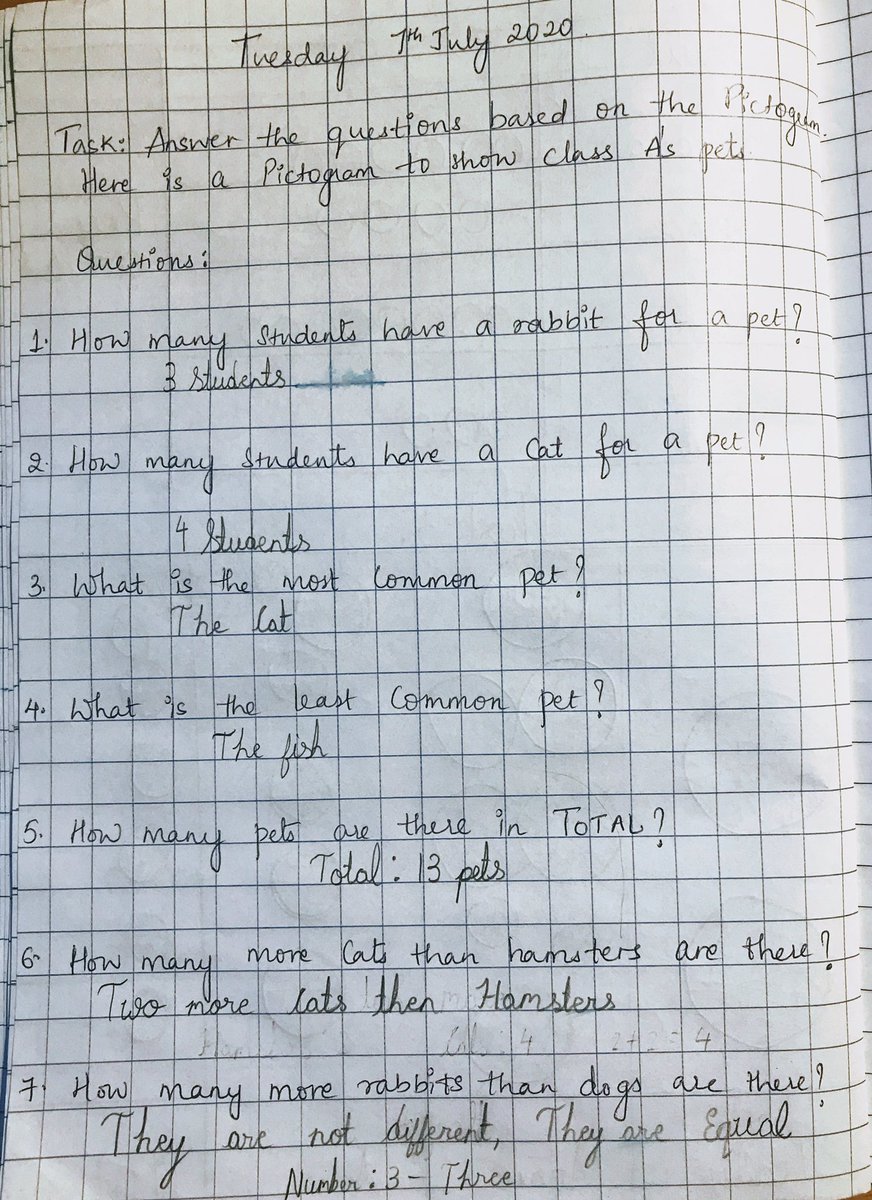 Tuesday 7th July 2020.
Task: Answer the questions based on the Pictogram.
Here is a Pictogram to show class A's pets
Questions:
1. How many students have a rabbit for a pet?
3 Students
2. How many students have a Cat for a pet?
4 Students
3. What is the most Common pet?
The Cat
4. What is the least Common pet?
The fish
5. How many pets are there in TOTAL?
Total: 13 pets
6. How many more Cats than hamsters are there?
Two more Cats then Hamsters
4 2+2=4
7. How many more rabbits than dogs are there?
They are not different, They are Equal
Number: 3 - Three